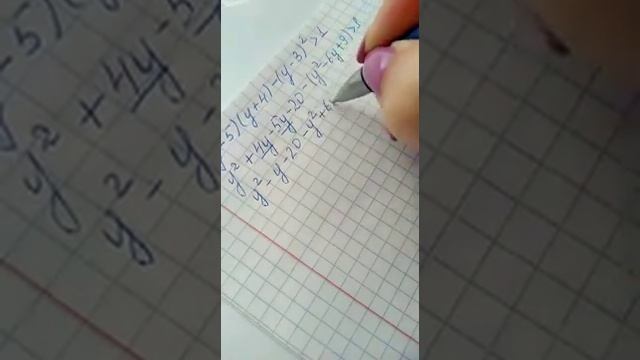 -5)(y+4)-(y-3)²>1
y²+4y-5y-20-(y²-6y+9)>1
y²-y-20-y²+6